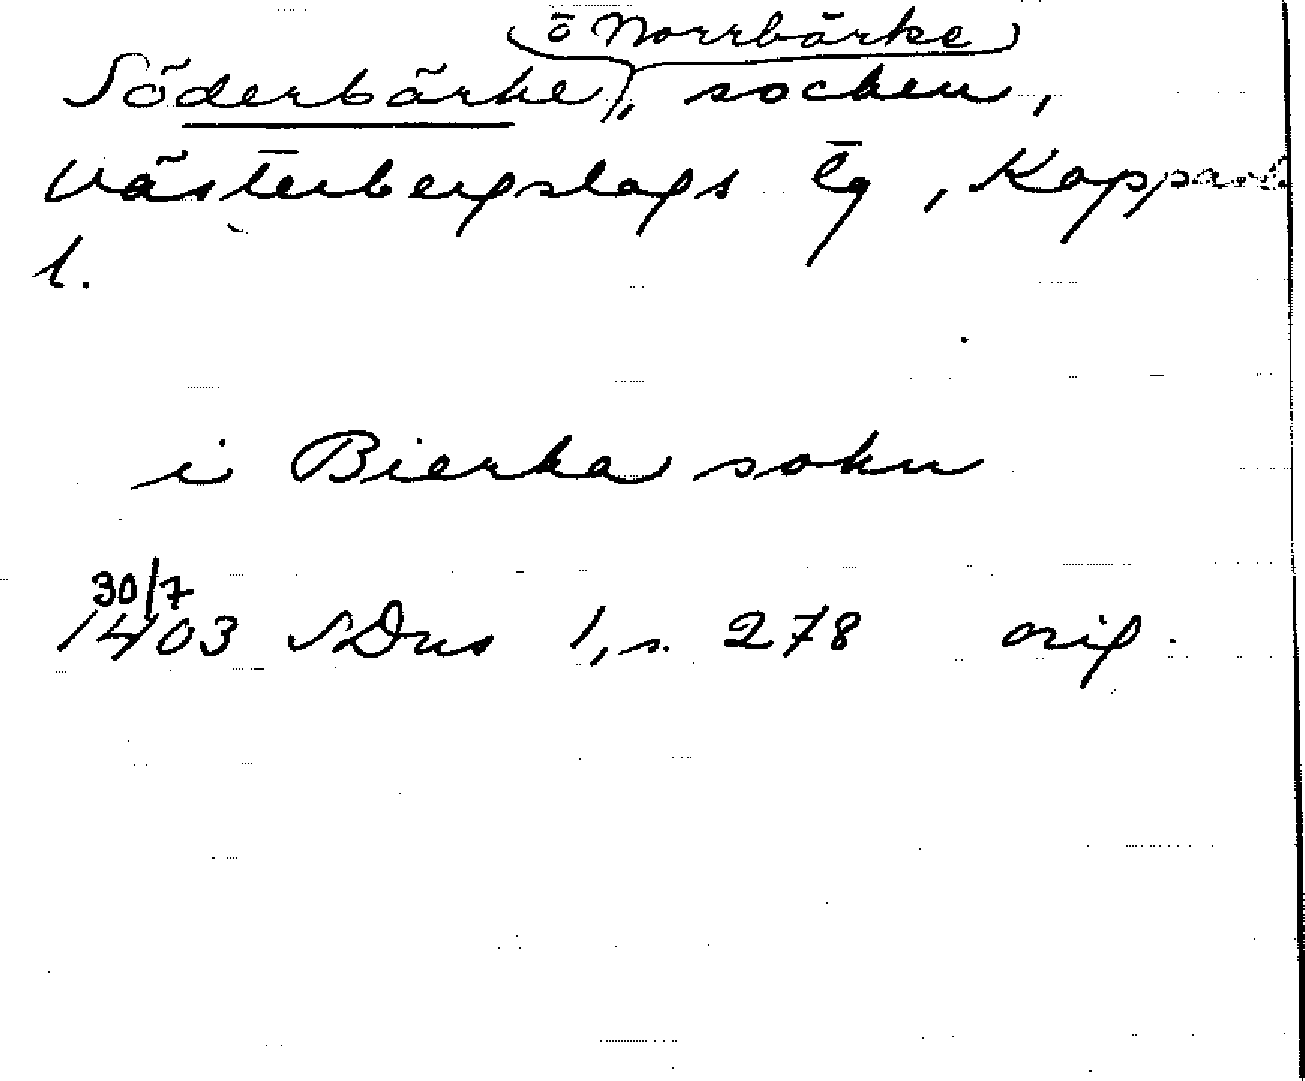 ō Norrbärke
Söderbärke, socken,
Västerbergslags tg, Kopparb.
l.
i Bierka sokn
30/7
1403 SDns 1, s. 278 orig.